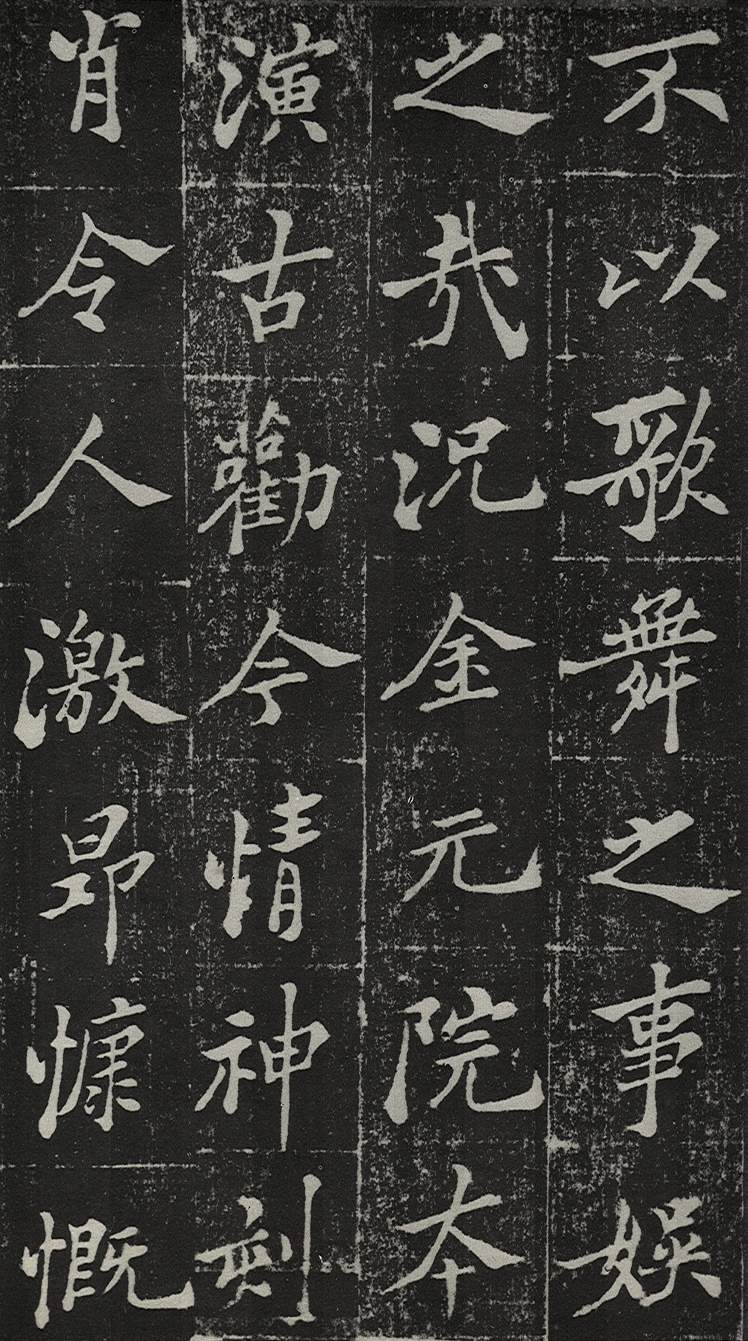 不以歌舞之事娛
之哉况金元院本
演古勸今情神刻
肖令人激昂慷慨